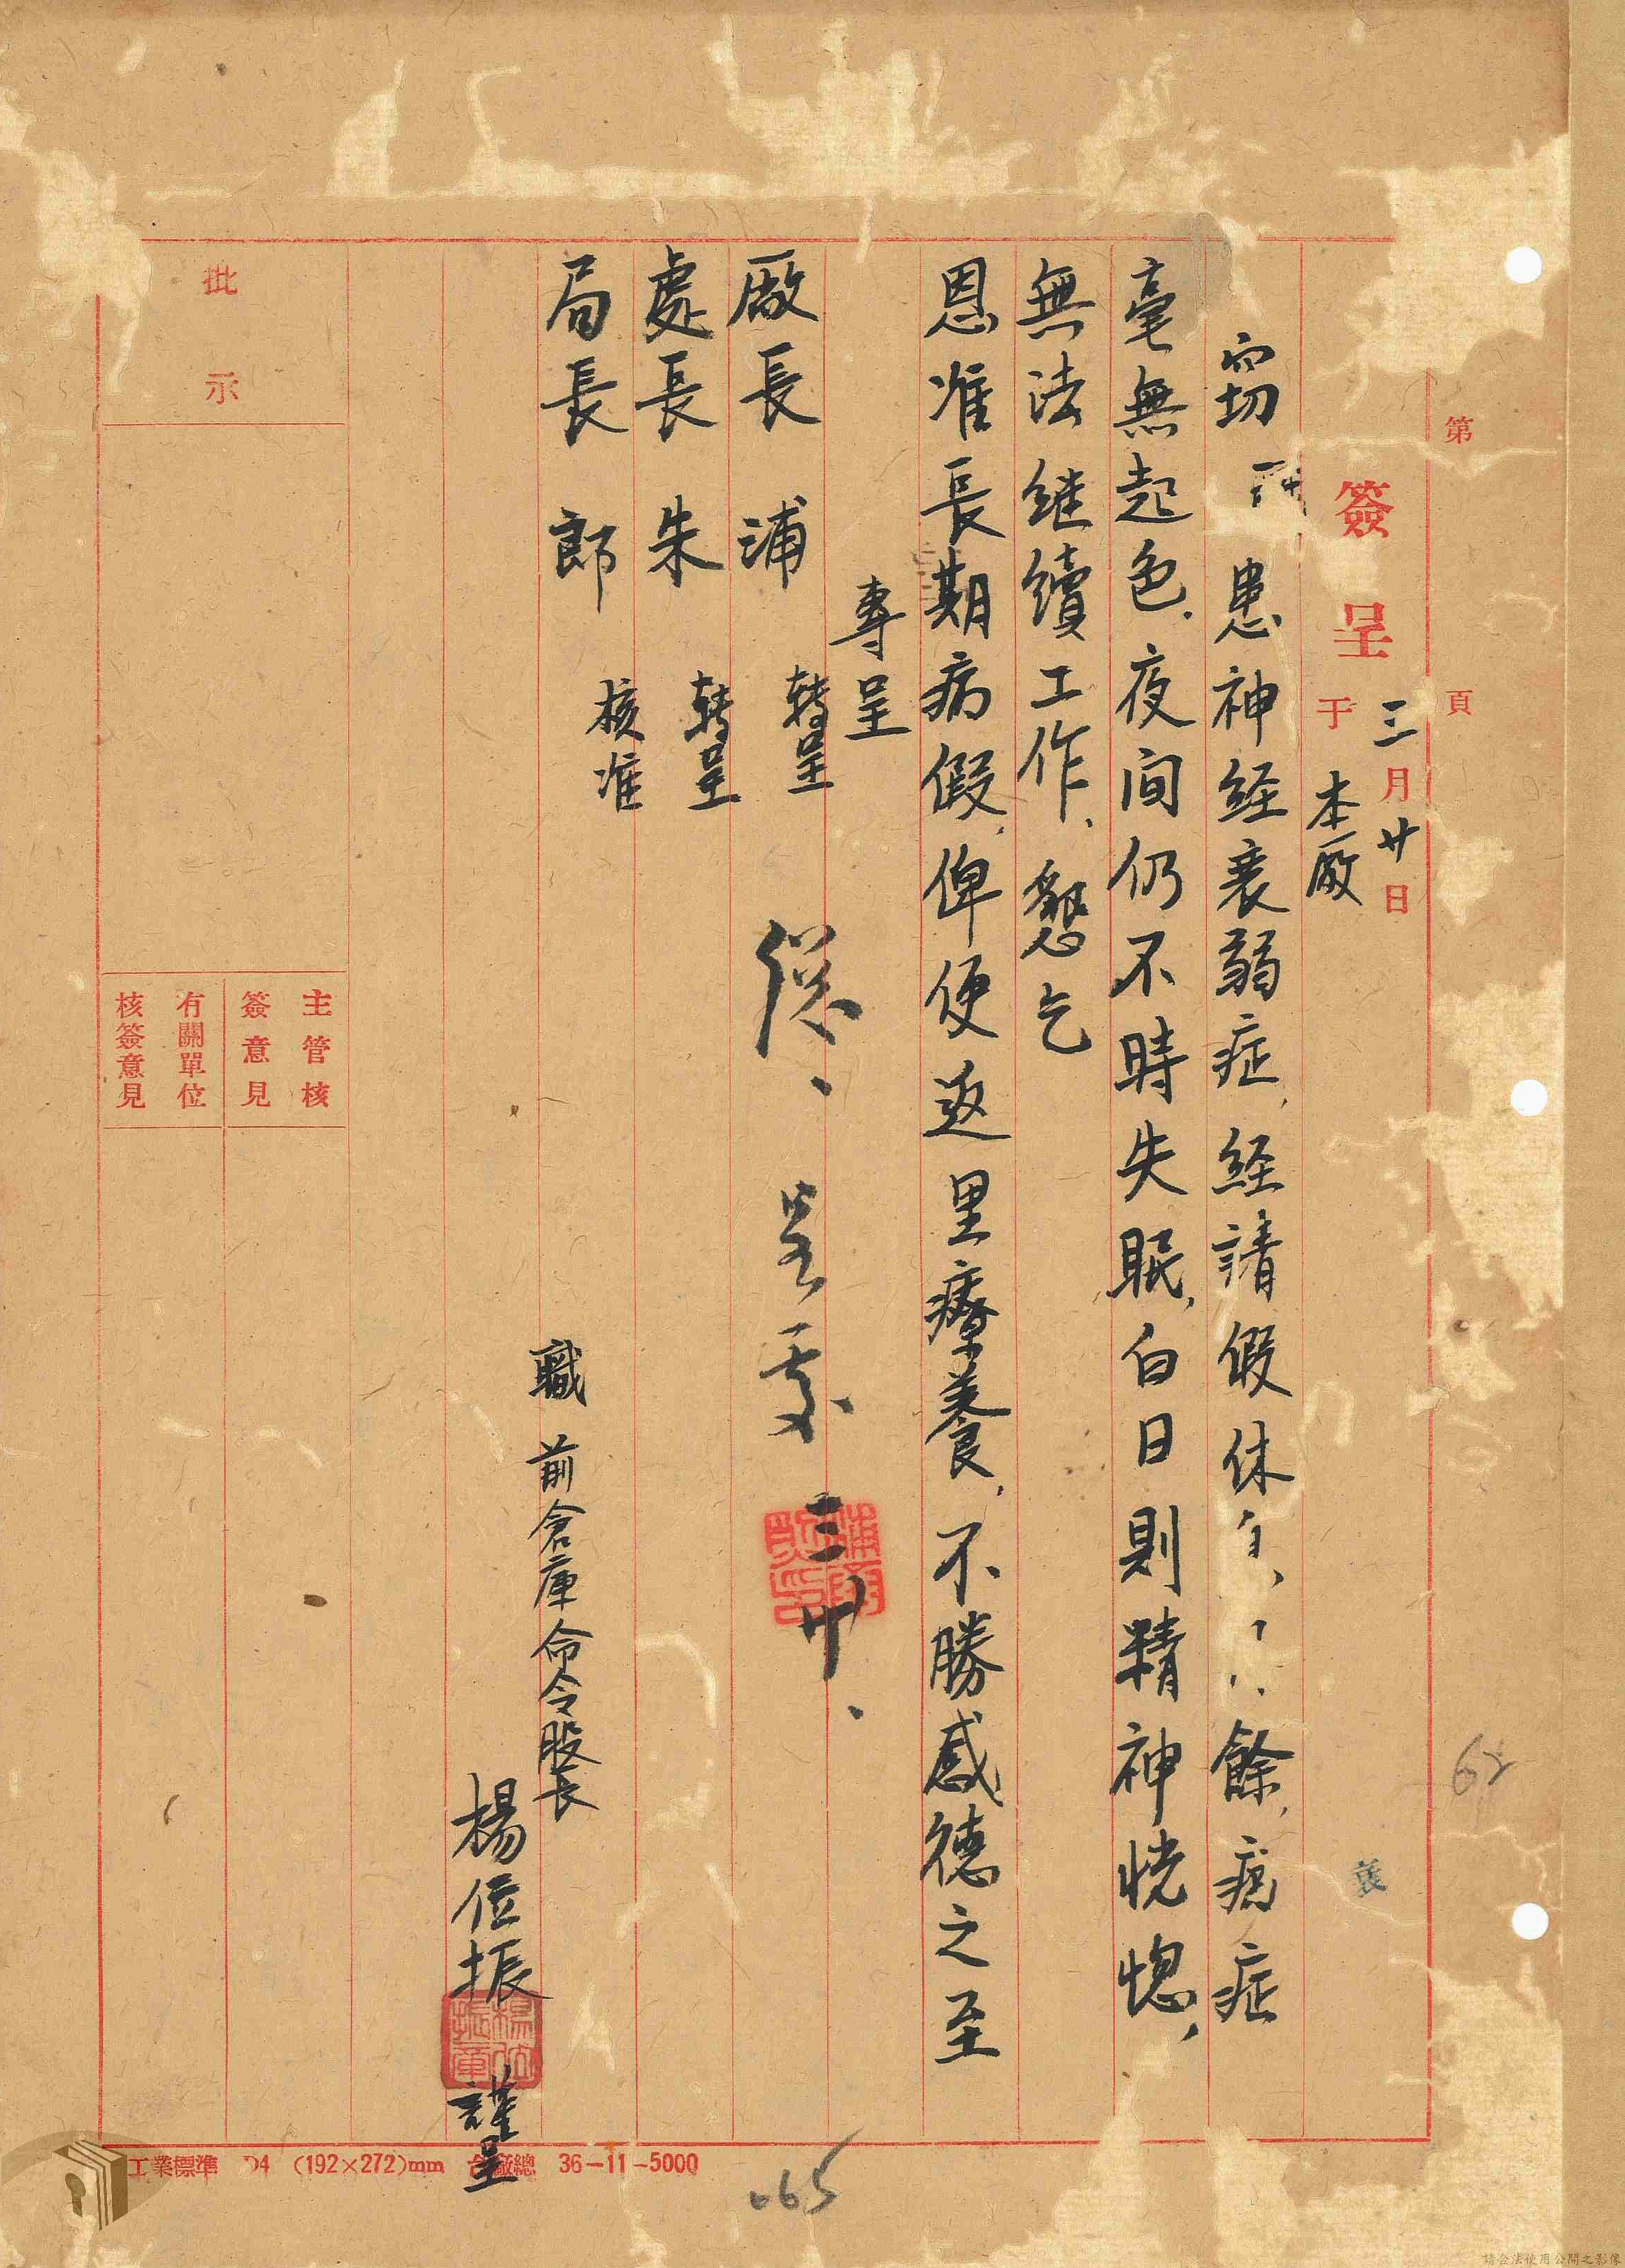 第 頁
三月廿日
簽呈 于 本廠
竊 患神経衰弱症,経請假休 餘,病症
毫無起色.夜间仍不時失眠,白日則精神恍惚,
無法继續工作、懇乞
恩准長期病假,俾便返里療養,不勝感德之至
專呈
廠長 浦 轉呈
處長 朱 轉呈
局長 郎 核准
三 廿、
職 前倉庫命令股長
楊位振 謹呈
批示
主管核
簽意見
有關單位
核簽意見
工業標準 D4 (192×272)mm 廠總 36-11-5000
62
065
請合法使用公開之影像